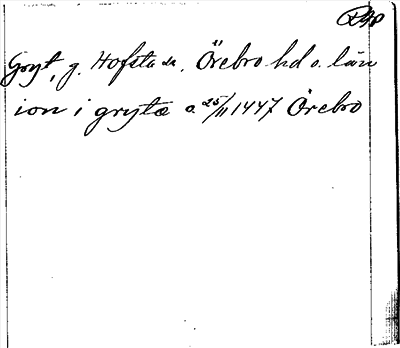 Gryt, g. Hofsta sn. Örebro hd o. län
ion i grytæ o. 25/11 1447 Örebro